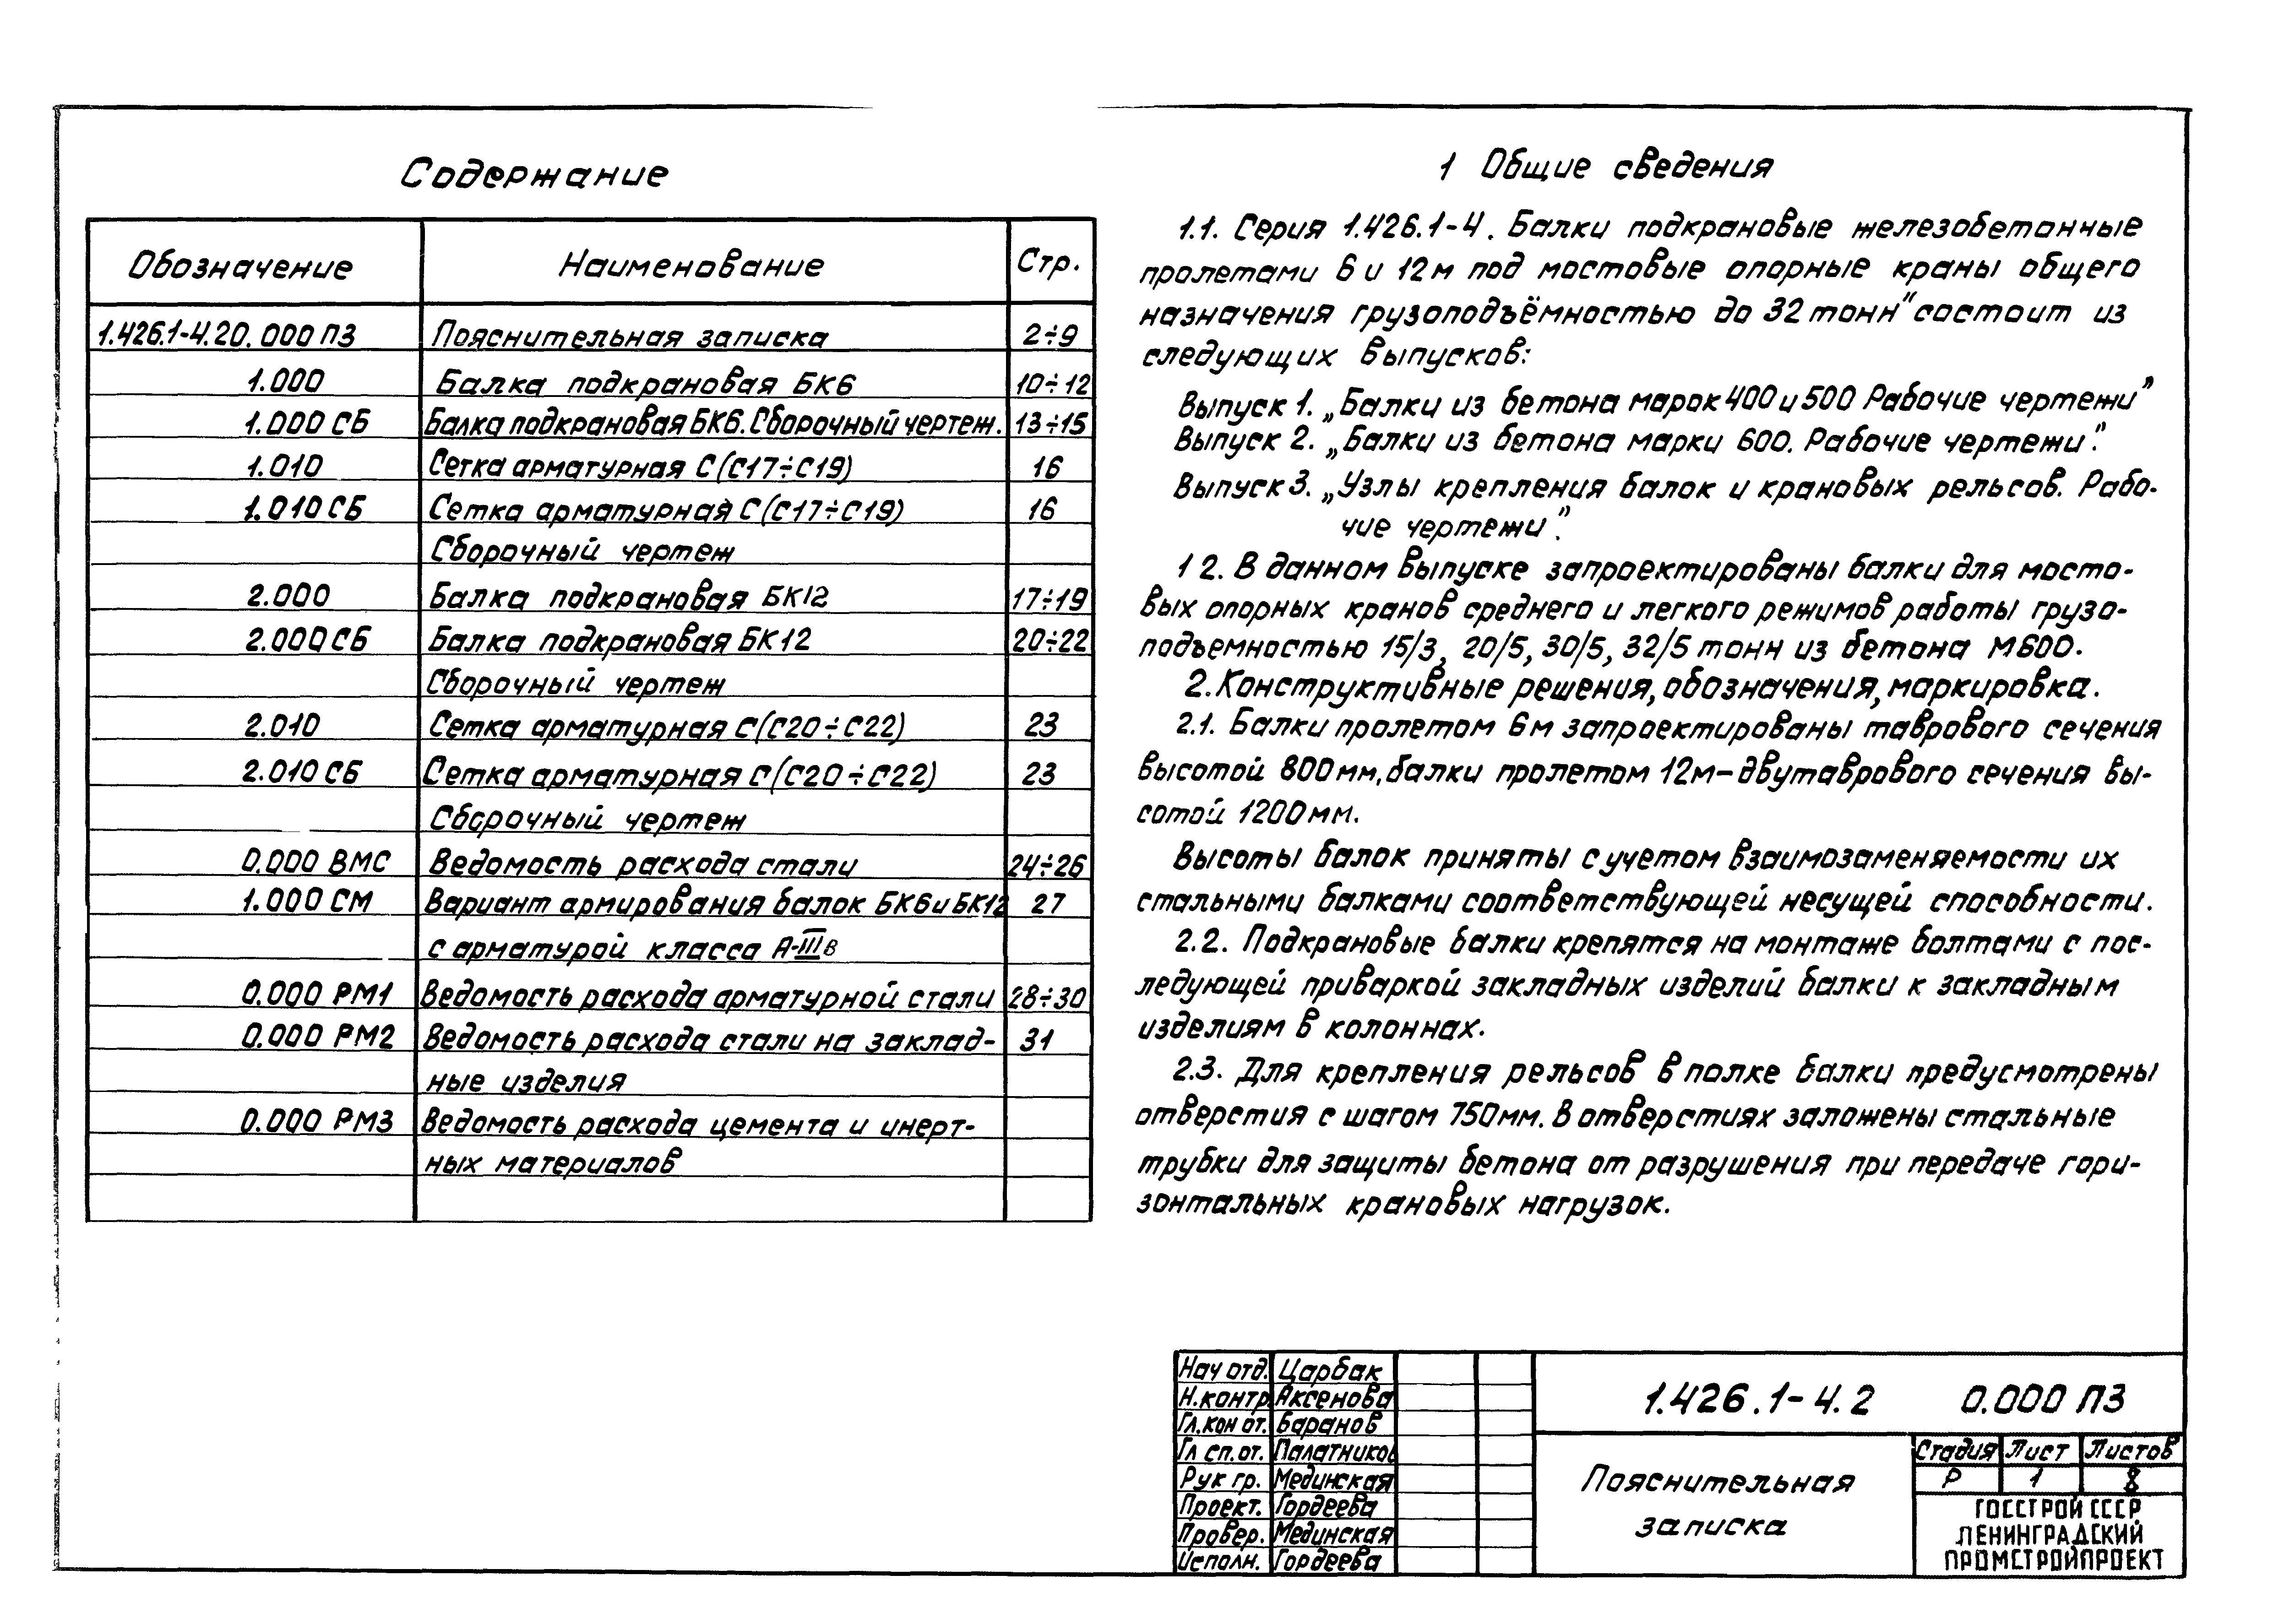 Содержание
Обозначение Наименование Стр.
1.426.1-4.20.000 ПЗ Пояснительная записка 2÷9
1.000 Балка подкрановая БК6 10÷12
1.000 СБ Балка подкрановая БК6. Сборочный чертеж. 13÷15
1.010 Сетка арматурная С (С17÷С19) 16
1.010 СБ Сетка арматурная С (С17÷С19) 16
Сборочный чертеж
2.000 Балка подкрановая БК12 17÷19
2.000 СБ Балка подкрановая БК12 20÷22
Сборочный чертеж
2.010 Сетка арматурная С (С20÷С22) 23
2.010 СБ Сетка арматурная С (С20÷С22) 23
Сборочный чертеж
0.000 ВМС Ведомость расхода стали 24÷26
1.000 СМ Вариант армирования балок БК6 и БК12 27
с арматурой класса А-IIIв
0.000 РМ1 Ведомость расхода арматурной стали 28÷30
0.000 РМ2 Ведомость расхода стали на заклад- 31
ные изделия
0.000 РМ3 Ведомость расхода цемента и инерт-
ных материалов
1 Общие сведения
1.1. Серия 1.426.1-4. Балки подкрановые железобетонные
пролетами 6 и 12 м под мостовые опорные краны общего
назначения грузоподъёмностью до 32 тонн" состоит из
следующих выпусков:
Выпуск 1. „Балки из бетона марок 400 и 500 Рабочие чертежи"
Выпуск 2. „Балки из бетона марки 600. Рабочие чертежи".
Выпуск 3. „Узлы крепления балок и крановых рельсов. Рабо-
чие чертежи".
1 2. В данном выпуске запроектированы балки для мосто-
вых опорных кранов среднего и легкого режимов работы грузо-
подъемностью 15/3, 20/5, 30/5, 32/5 тонн из бетона М600.
2. Конструктивные решения, обозначения, маркировка.
2.1. Балки пролетом 6 м запроектированы таврового сечения
высотой 800 мм, балки пролетом 12 м - двутаврового сечения вы-
сотой 1200 мм.
Высоты балок приняты с учетом взаимозаменяемости их
стальными балками соответствующей несущей способности.
2.2. Подкрановые балки крепятся на монтаже болтами с пос-
ледующей приваркой закладных изделий балки к закладным
изделиям в колоннах.
2.3. Для крепления рельсов в полке балки предусмотрены
отверстия с шагом 750 мм. В отверстиях заложены стальные
трубки для защиты бетона от разрушения при передаче гори-
зонтальных крановых нагрузок.
Нач отд. Царбак
Н.контр. Аксенова
Гл.кон от. Баранов
Гл сп.от. Палатников
Рук гр. Мединская
Проект. Гордеева
Провер. Мединская
Исполн. Гордеева
1.426.1-4.2 0.000 ПЗ
Пояснительная
записка
Стадия Лист Листов
Р 1 8
ГОССТРОЙ СССР
ЛЕНИНГРАДСКИЙ
ПРОМСТРОЙПРОЕКТ